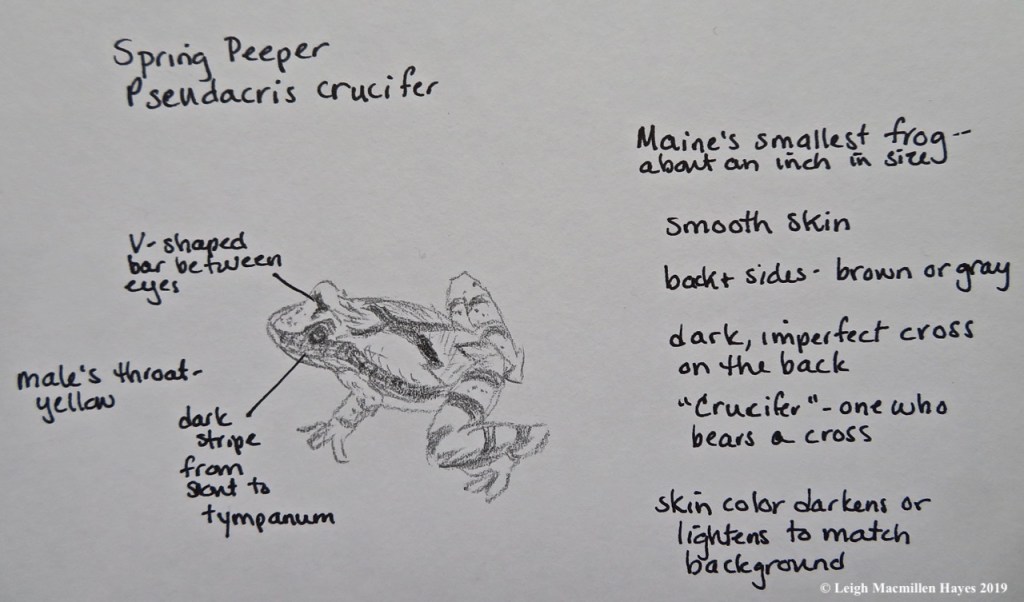 Spring Peeper
Pseudacris crucifer
Maine's smallest frog--
about an inch in size
smooth skin
back + sides - brown or gray
dark, imperfect cross
on the back
"Crucifer" - one who
bears a cross
skin color darkens or
lightens to match
background
V-shaped
bar between
eyes
male's throat-
yellow
dark
stripe
from
snout to
tympanum
© Leigh Macmillen Hayes 2019